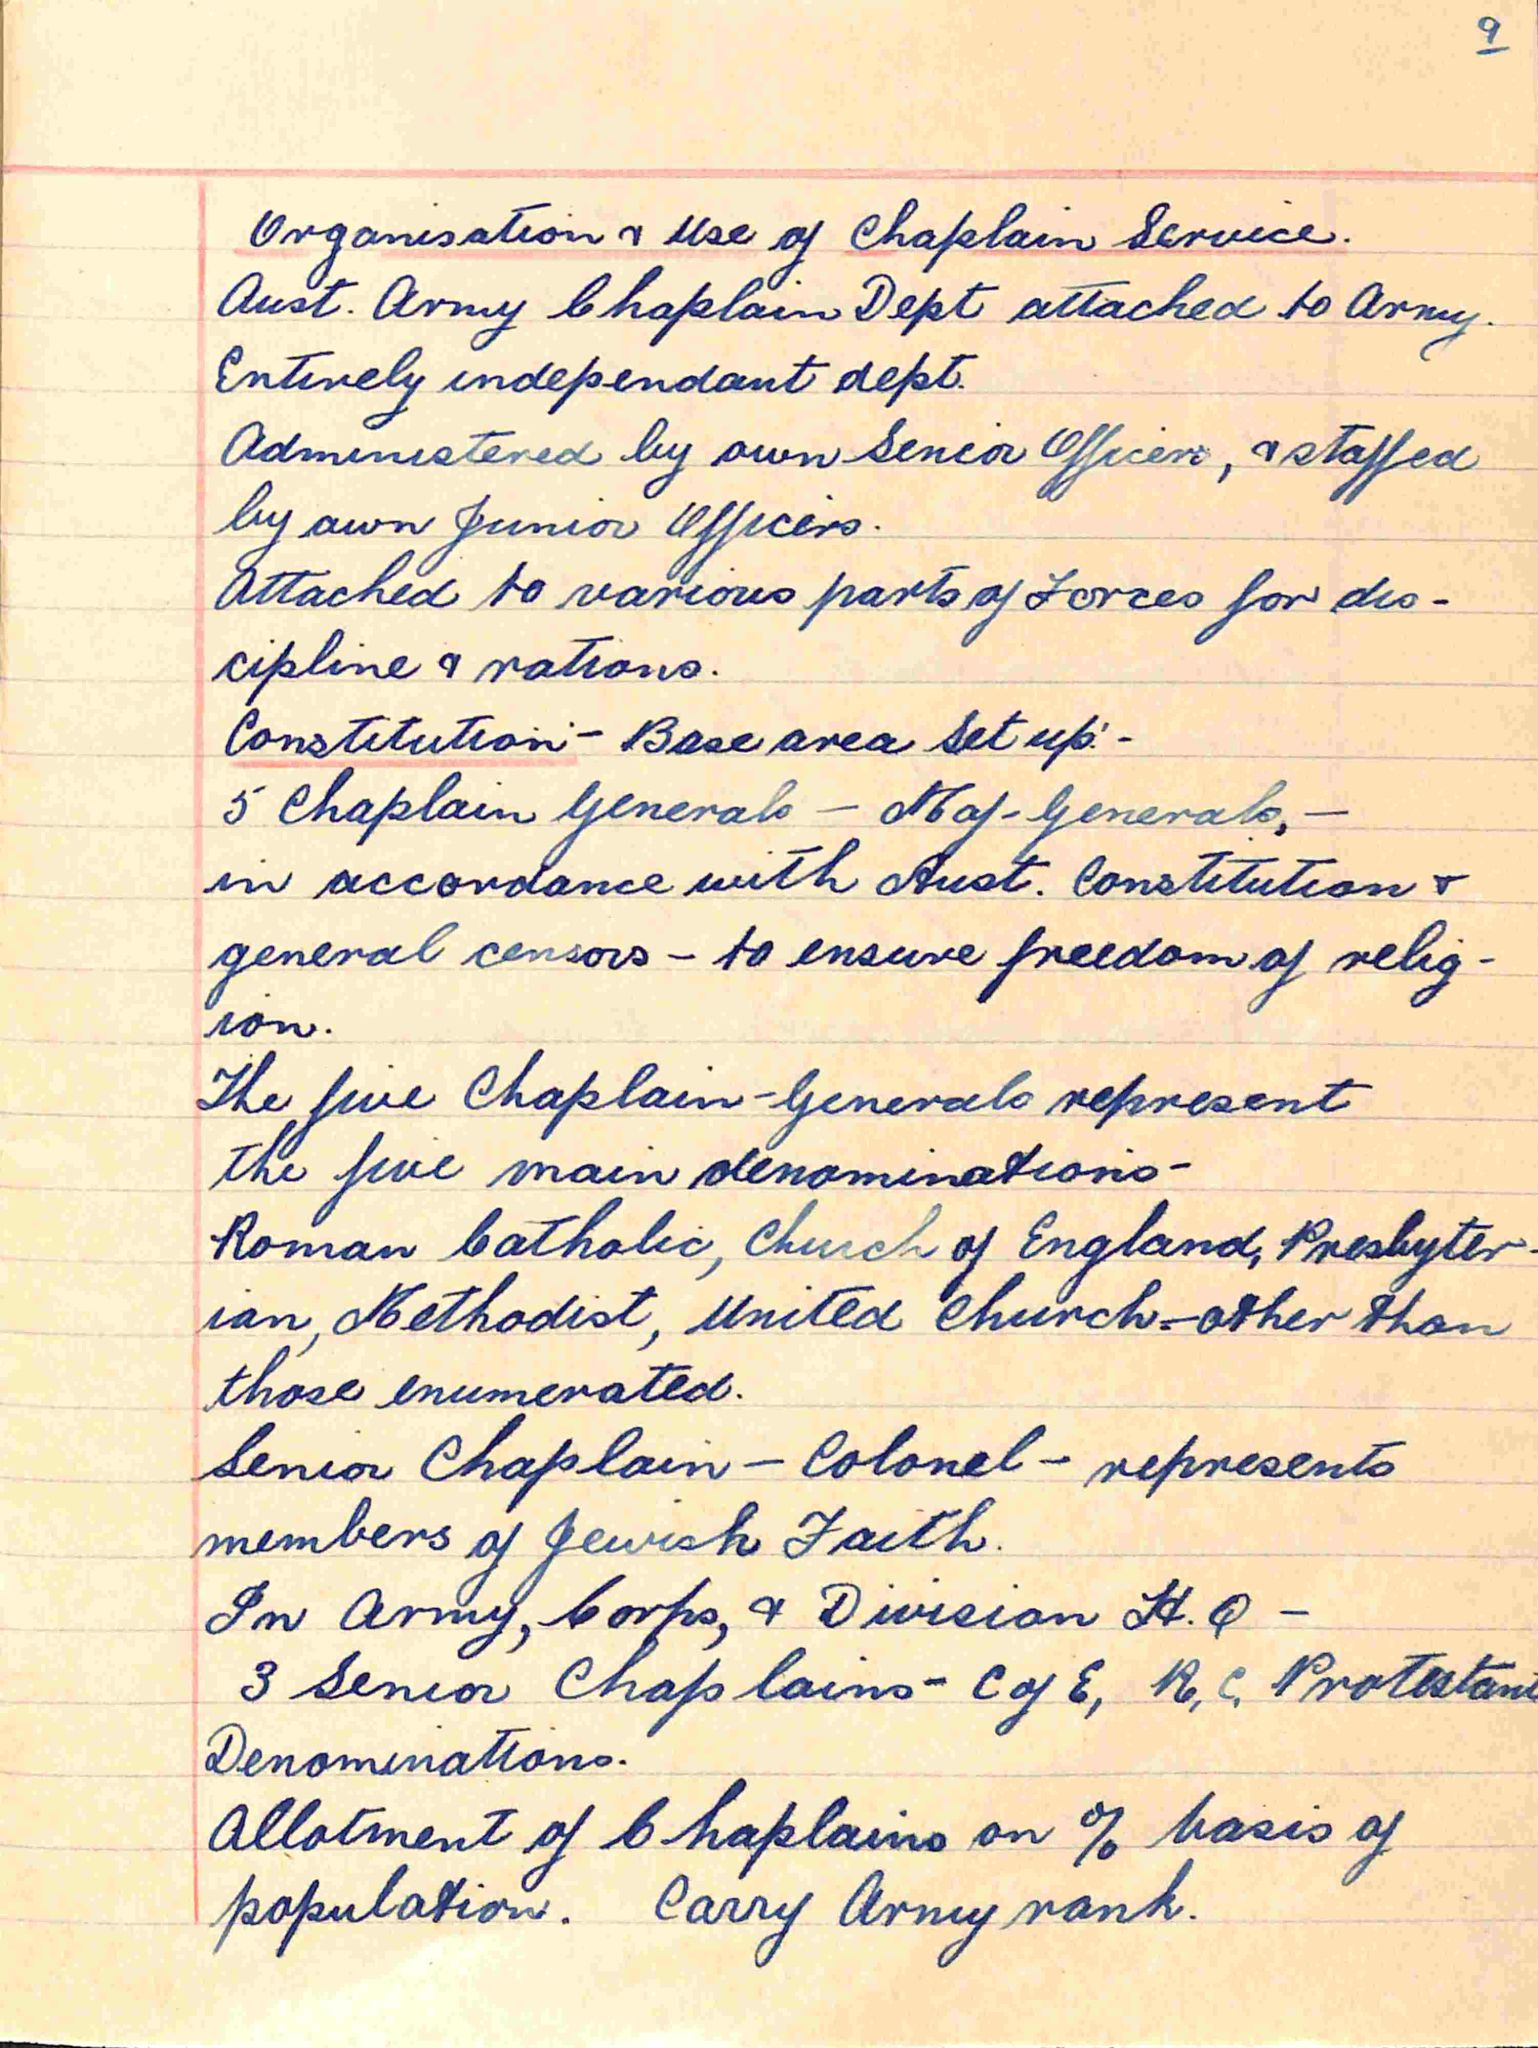 9
Organisation & Use of Chaplain Service.
Aust. Army Chaplain Dept attached to Army.
Entirely independant dept.
Administered by own Senior Officers, & staffed
by own Junior Officers.
Attached to various parts of Forces for dis-
cipline & rations.
Constitution - Base area Set up:-
5 Chaplain Generals - Maj-Generals, -
in accordance with Aust. Constitution &
general censors - to ensure freedom of relig-
ion.
The five Chaplain-Generals represent
the five main denominations -
Roman Catholic, Church of England, Presbyter-
ian, Methodist, United Church - other than
those enumerated.
Senior Chaplain - Colonel - represents
members of Jewish Faith.
In Army, Corps, & Division H.Q -
3 Senior Chaplains - C of E, R.C. Protestant
Denominations.
Allotment of Chaplains on % basis of
population. Carry Army rank.